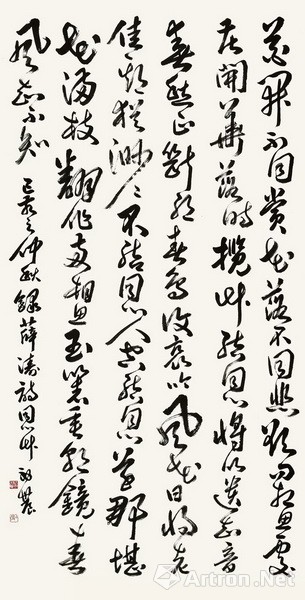 花開不同賞花落不同悲欲問相思處
花開華落時攬草結同心將以遺知音
春愁正斷絕春鳥復哀吟風花日將老
佳期猶渺々不結同心人空結同心草那堪
花滿枝翻作兩相思玉箸垂朝鏡春
風知不知 之仲秋錄薛濤詩同心草
Artron.Net